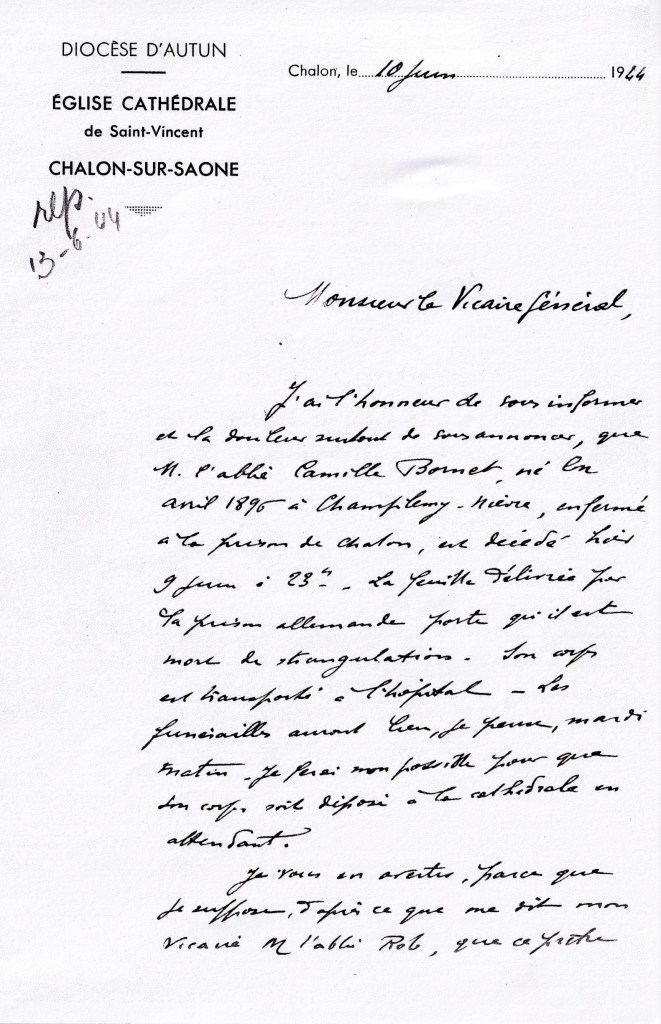 DIOCÈSE D'AUTUN
Chalon, le 10 Juin 1944
ÉGLISE CATHÉDRALE
de Saint-Vincent
CHALON-SUR-SAONE
rép.
13-6-44
Monsieur le Vicaire Général,
J'ai l'honneur de vous informer
et la douleur surtout de vous annoncer, que
M. l'abbé Camille Bornet, né en
avril 1896 à Champlemy-Nièvre, enfermé
à la prison de Chalon, est décédé hier
9 Juin à 23h. La feuille délivrée par
la prison allemande porte qu'il est
mort de strangulation. Son corps
est transporté à l'hôpital - Les
funérailles auront lieu, je pense, mardi
matin. Je ferai mon possible pour que
son corps soit déposé à la cathédrale en
attendant.
Je vous en avertis, parce que
je suppose, d'après ce que me dit mon
vicaire M l'abbé Rob, que ce prêtre